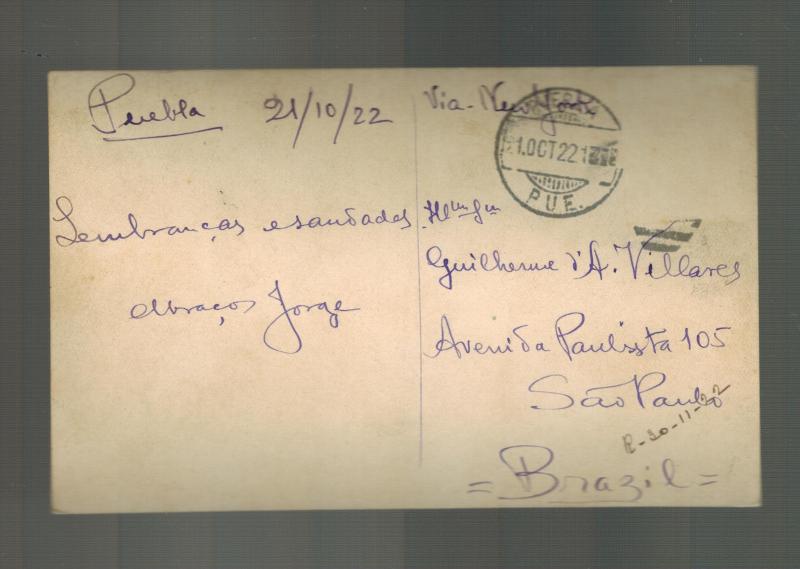 Puebla 21/10/22
Lembranças e saudades
Abraços Jorge
Via-New York
PUE.
Guilherme d'A. Villares
Avenida Paulista 105
São Paulo
R-30-11-22
=Brazil=